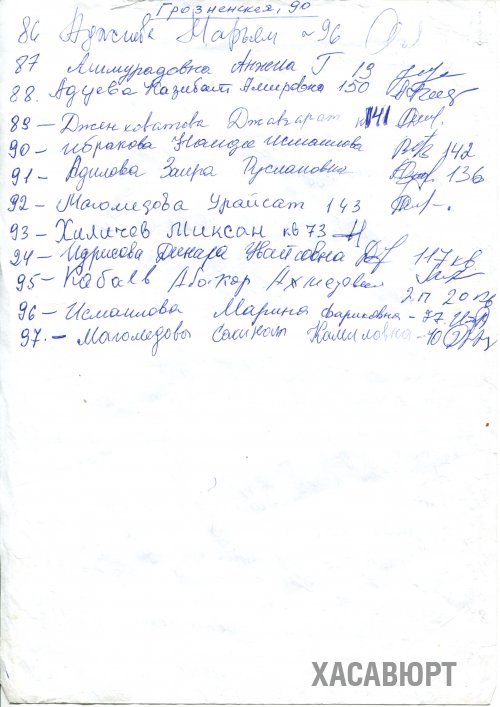 Грозненская, 90
86 Аджиева Марьям - 96
87 Алимурадовна Анжела Г 19
88. Адуева Казибат Амировна 150
89 - Дженковатова Джавгарат 141
90 - Ибракова Исмаиловна 142
91 - Адилова Заира Руслановна 136
92 - Магомедова Урайсат 143
93 - Халичев Миксан кв 73
94 - Идрисова Динара Увайсовна 117 кв
95 - Кабаев Абакар Ахмедович
2п 20 кв
96 - Исмаилова Марина Фариковна - 77.
97. - Магомедовы Сакинат Камиловна - 10
ХАСАВЮРТ